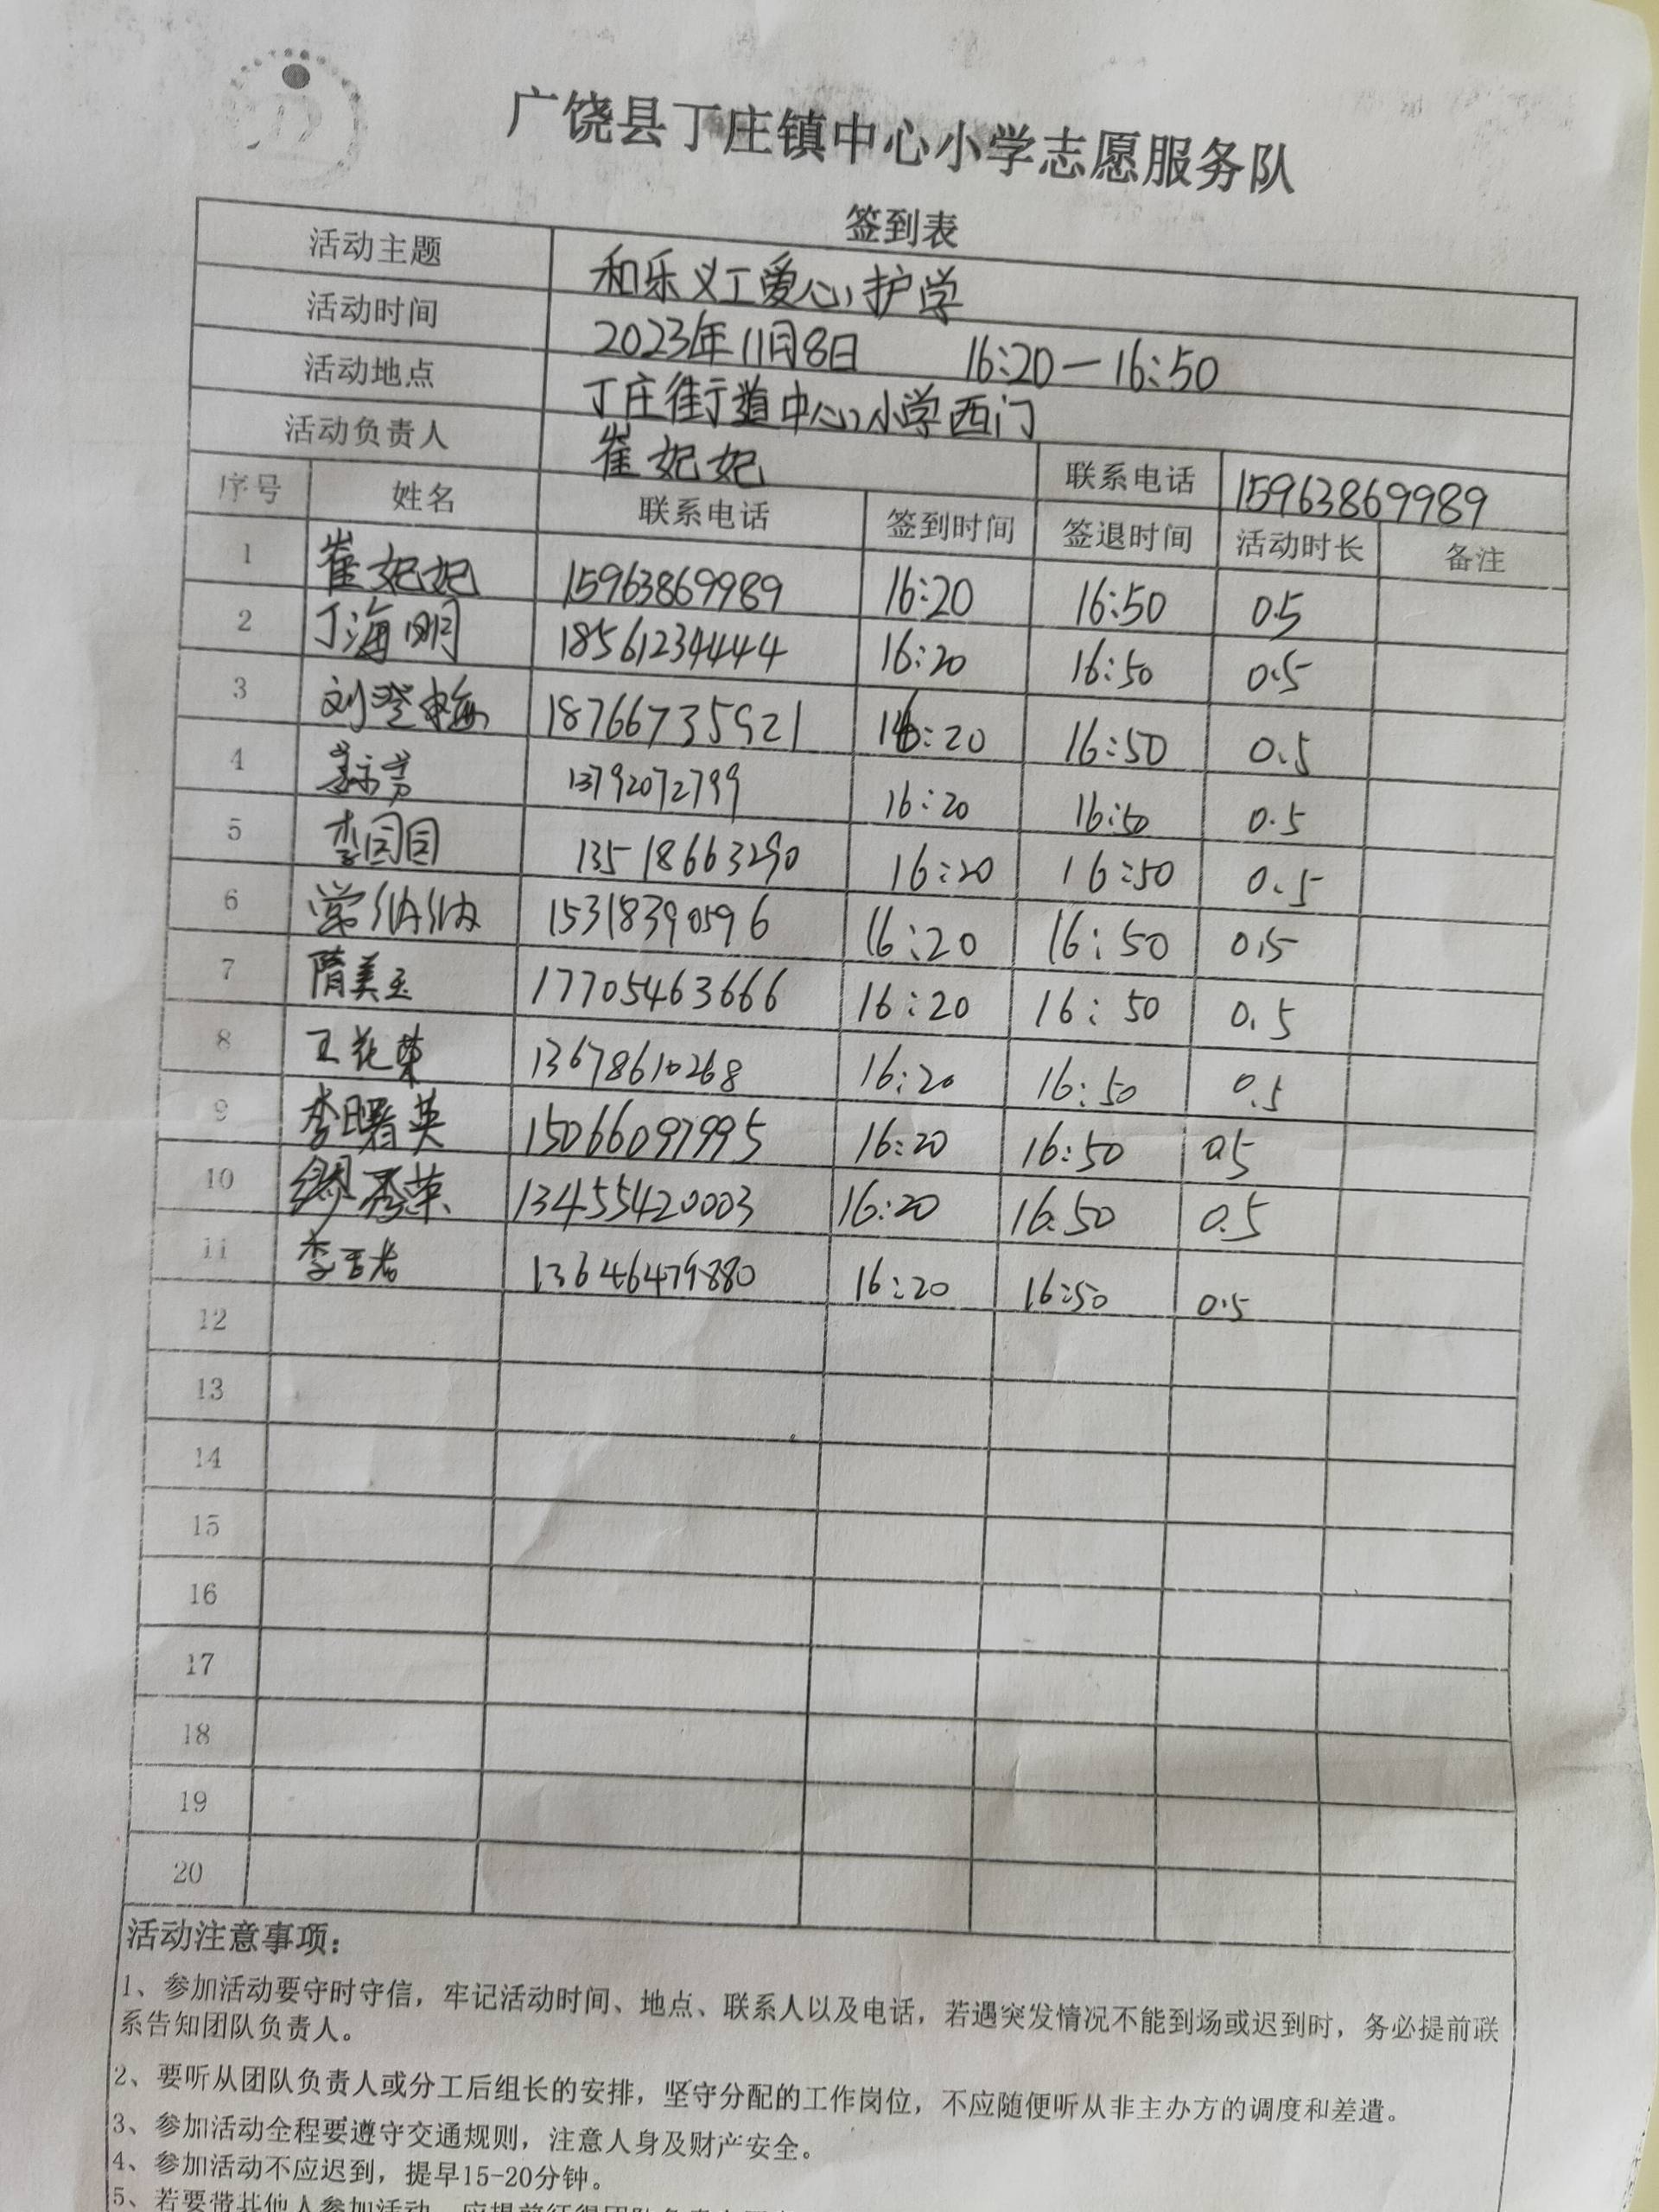 广饶县丁庄镇中心小学志愿服务队
签到表
活动主题 和乐义工爱心护学
活动时间 2023年11月8日 16:20—16:50
活动地点 丁庄街道中心小学西门
活动负责人 崔妃妃 联系电话 15963869989
序号 姓名 联系电话 签到时间 签退时间 活动时长 备注
1 崔妃妃 15963869989 16:20 16:50 0.5
2 丁海明 18561234444 16:20 16:50 0.5
3 刘登梅 18766735921 16:20 16:50 0.5
4 13792072799 16:20 16:50 0.5
5 李园园 13518663290 16:20 16:50 0.5
6 常纳纳 15318390596 16:20 16:50 0.5
7 隋美玉 17705463666 16:20 16:50 0.5
8 王花荣 13678610268 16:20 16:50 0.5
9 李曙英 15066097995 16:20 16:50 0.5
10 缪秀荣 13455420003 16:20 16:50 0.5
11 13646479880 16:20 16:50 0.5
12
13
14
15
16
17
18
19
20
活动注意事项：
1、参加活动要守时守信，牢记活动时间、地点、联系人以及电话，若遇突发情况不能到场或迟到时，务必提前联
系告知团队负责人。
2、要听从团队负责人或分工后组长的安排，坚守分配的工作岗位，不应随便听从非主办方的调度和差遣。
3、参加活动全程要遵守交通规则，注意人身及财产安全。
4、参加活动不应迟到，提早15-20分钟。
5、若要带其他人参加活动，应提前征得团队负责人